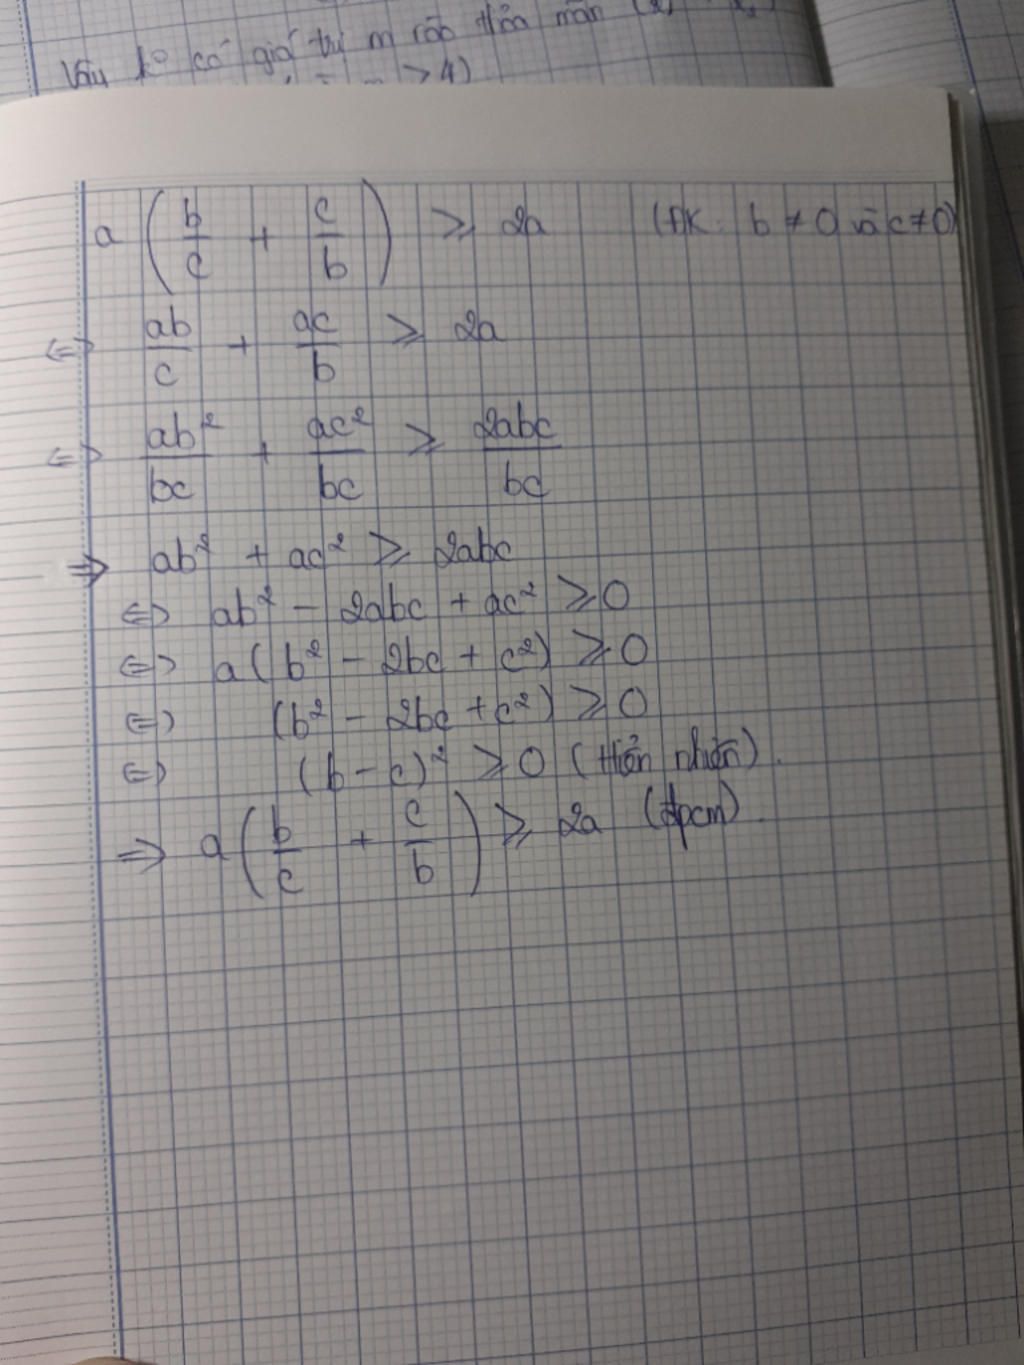 Vậy ko có giá trị m nào thỏa mãn
> 4)
a (b/c + c/b) ≥ 2a (ĐK: b ≠ 0 và c ≠ 0)
<=> ab/c + ac/b ≥ 2a
<=> ab²/bc + ac²/bc ≥ 2abc/bc
=> ab² + ac² ≥ 2abc
<=> ab² - 2abc + ac² ≥ 0
<=> a(b² - 2bc + c²) ≥ 0
<=> (b² - 2bc + c²) ≥ 0
<=> (b - c)² ≥ 0 (Hiển nhiên).
=> a (b/c + c/b) ≥ 2a (đpcm).